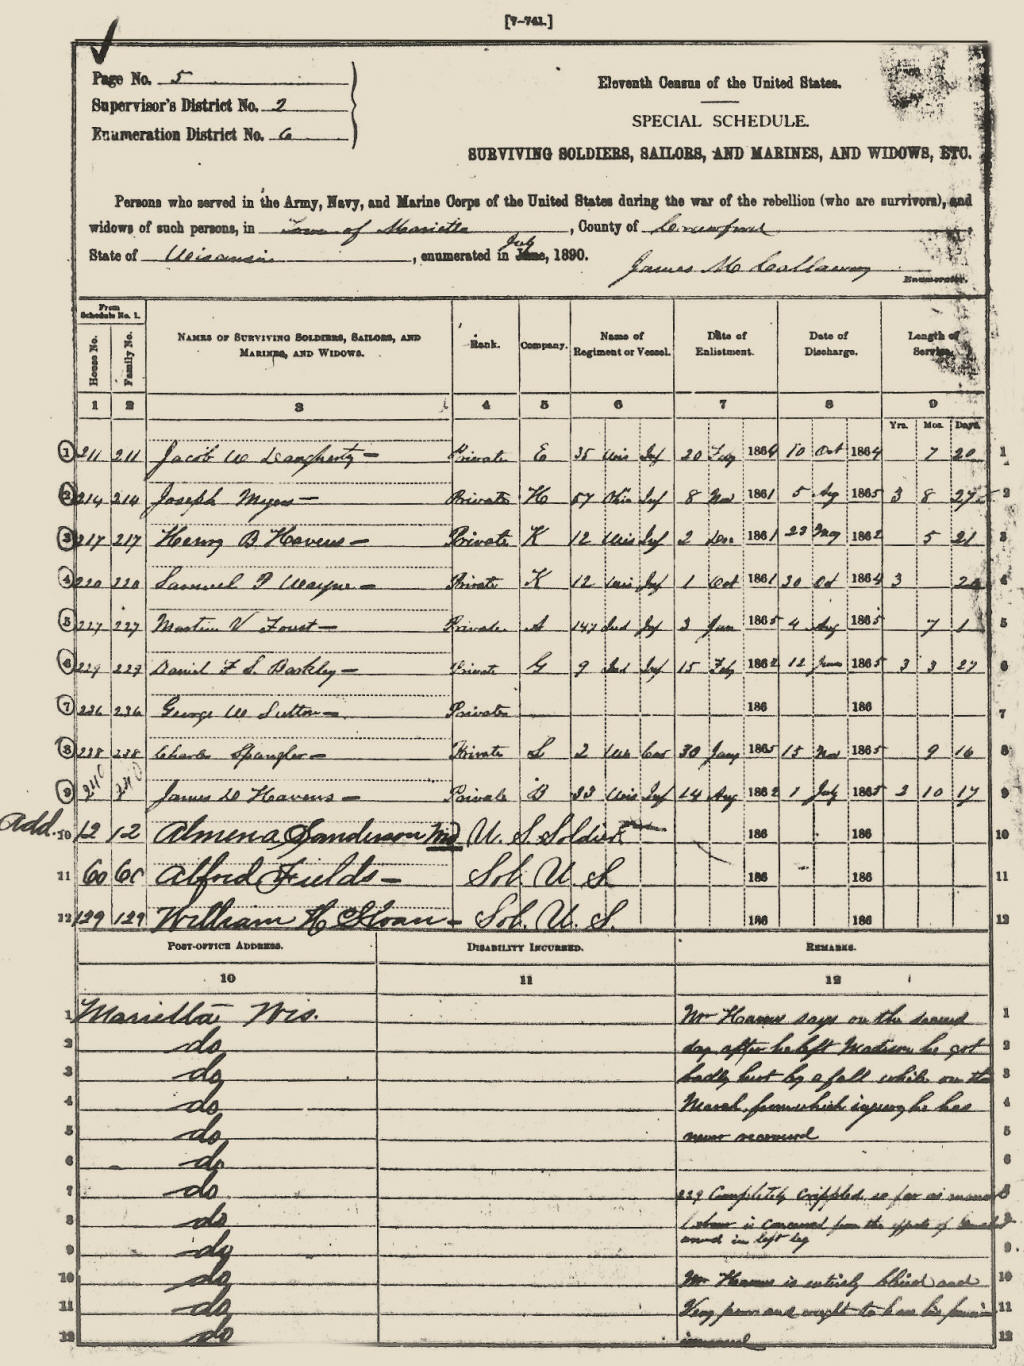 [7-741.]
Page No. 5
Supervisor's District No. 2
Enumeration District No. 6
Eleventh Census of the United States.
SPECIAL SCHEDULE.
SURVIVING SOLDIERS, SAILORS, AND MARINES, AND WIDOWS, ETC.
Persons who served in the Army, Navy, and Marine Corps of the United States during the war of the rebellion (who are survivors), and
widows of such persons, in Town of Marietta, County of Crawford
State of Wisconsin, enumerated in June, July 1890.
James M Callaway
Enumerator.
From Schedule No. 1.
House No. Family No. NAMES OF SURVIVING SOLDIERS, SAILORS, AND MARINES, AND WIDOWS. Rank. Company. Name of Regiment or Vessel. Date of Enlistment. Date of Discharge. Length of Service.
1 2 3 4 5 6 7 8 9
Yrs. Mos. Days.
1 211 211 Jacob W Daugherty Private E 35 Wis Inf 20 Feby 1864 10 Oct 1864 7 20 1
2 214 214 Joseph Myers Private H 57 Ohio Inf 8 Nov 1861 5 Aug 1865 3 8 27 2
3 217 217 Henry B Havens Private K 12 Wis Inf 2 Dec 1861 23 May 1862 5 21 3
4 220 220 Samuel P Wayne Private K 12 Wis Inf 1 Oct 1861 30 Oct 1864 3 4
5 227 227 Martin V Foust Private A 147 Ind Inf 3 Jan 1865 4 Aug 1865 7 1 5
6 229 229 Daniel F S Barkley Private G 9 Ind Inf 15 Feby 1862 12 June 1865 3 3 27 6
7 236 236 George W Sutton Private 186 186 7
8 238 238 Charles Spangler Private L 2 Wis Cav 30 Jany 1865 15 Nov 1865 9 16 8
9 240 240 James D Havens Private B 33 Wis Inf 14 Aug 1862 1 July 1865 2 10 17 9
Add. 10 12 12 Almena Sanderson Wid U. S. Soldier 186 186 10
11 60 60 Alfred Fields Sol. U S 186 186 11
12 129 129 William H Sloan Sol. U. S. 186 186 12
POST-OFFICE ADDRESS. DISABILITY INCURRED. REMARKS.
10 11 12
1 Marietta Wis. Mr Havens says on the second 1
2 do day after he left Madison he got 2
3 do badly hurt by a fall while on the 3
4 do March from which injury he has 4
5 do never recovered 5
6 do 6
7 do 229 Completely crippled so far as manual
8 do Labour is concerned from the effects of
9 do wound in left leg 9
10 do Mr Havens is entirely blind and 10
11 do Very poor and ought to have his pension 11
12 do increased 12